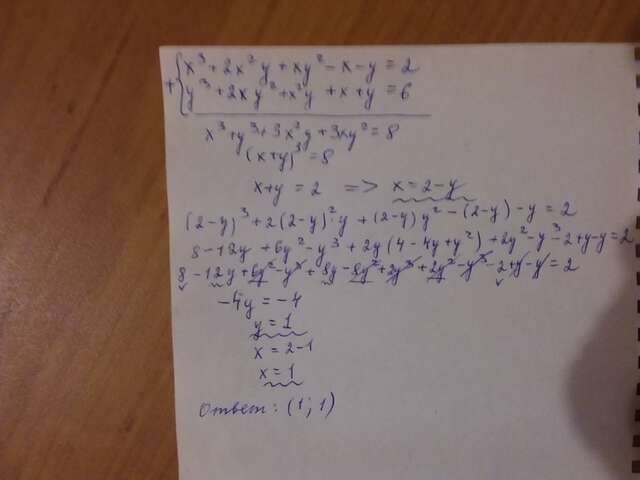 + { x³ + 2x²y + xy² - x - y = 2
y³ + 2xy² + x²y + x + y = 6
x³ + y³ + 3x²y + 3xy² = 8
(x+y)³ = 8
x+y = 2 => x = 2-y
(2-y)³ + 2(2-y)²y + (2-y)y² - (2-y) - y = 2
8 - 12y + 6y² - y³ + 2y(4 - 4y + y²) + 2y² - y³ - 2 + y - y = 2
8 - 12y + 6y² - y³ + 8y - 8y² + 2y³ + 2y² - y³ - 2 + y - y = 2
-4y = -4
y = 1
x = 2-1
x = 1
Ответ: (1; 1)